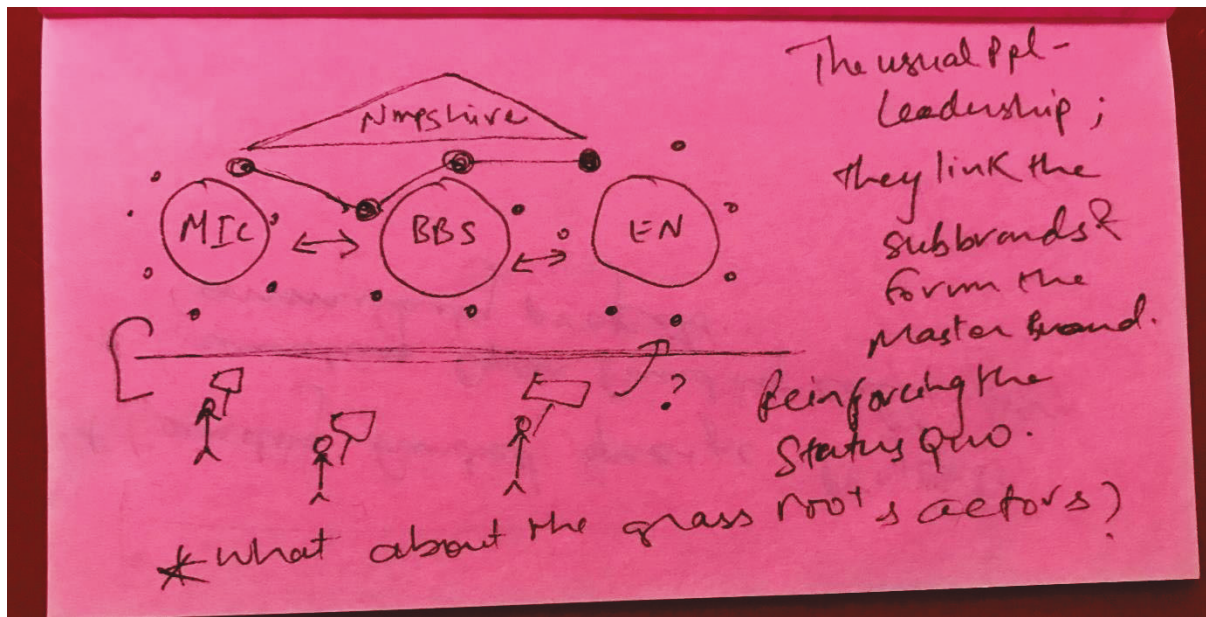 Nmpshire
MIC
BBS
EN
The usual ppl -
Leadership;
they link the
subbrands &
form the
Master Brand.
Reinforcing the
Status Quo.
?
* What about the grass roots actors?